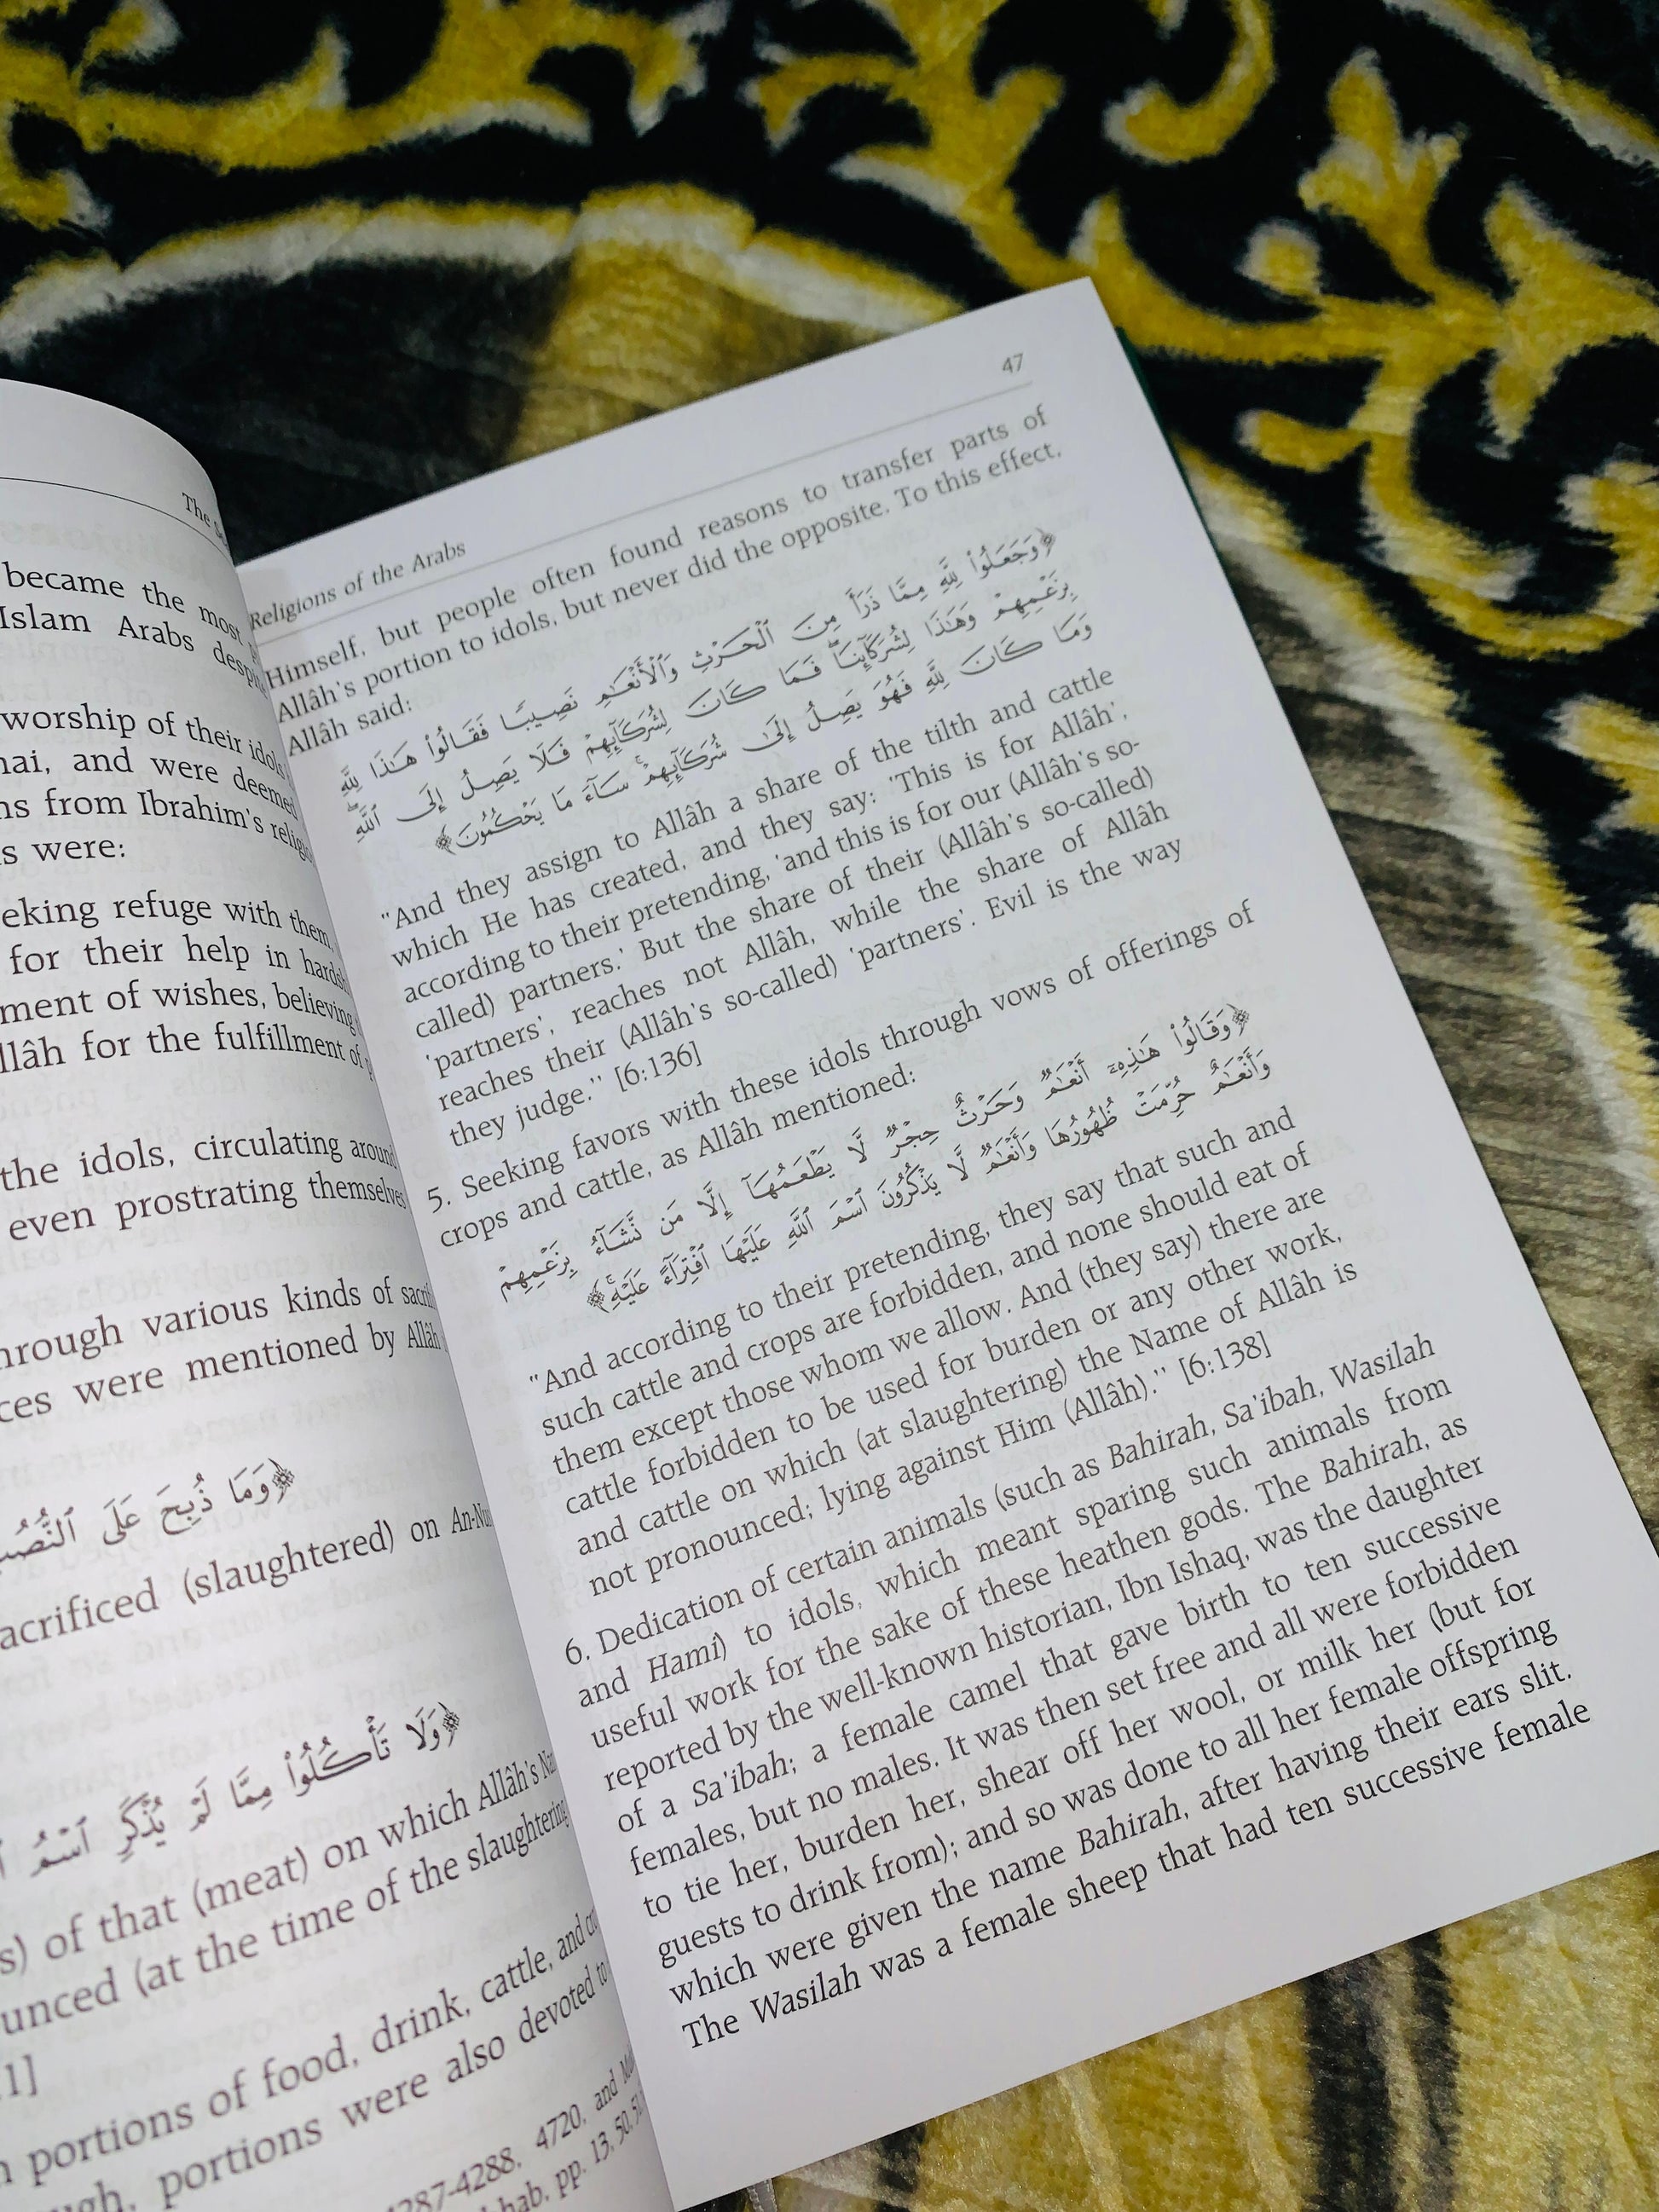 The
became the most
Islam Arabs
worship of their idols
and were deemed
from Ibrahim's
were:
refuge with them,
for their help in
of wishes, believing
for the fulfillment of
the idols, circulating around
even prostrating themselves
various kinds of
were mentioned by Allâh
﴿وَمَا ذُبِحَ عَلَى
(slaughtered) on
﴿وَلَا تَأْكُلُوا۟ مِمَّا لَمْ يُذْكَرِ ٱسْمُ
of that (meat) on which Allâh's
(at the time of the slaughtering
portions of food, drink, cattle, and
portions were also devoted to
4287-4288, 4720, and
pp. 13, 50,
Religions of the Arabs 47
Himself, but people often found reasons to transfer parts of
Allâh's portion to idols, but never did the opposite. To this effect,
Allâh said:
﴿وَجَعَلُوا۟ لِلَّهِ مِمَّا ذَرَأَ مِنَ ٱلْحَرْثِ وَٱلْأَنْعَٰمِ نَصِيبًا فَقَالُوا۟ هَٰذَا لِلَّهِ
بِزَعْمِهِمْ وَهَٰذَا لِشُرَكَآئِنَا ۖ فَمَا كَانَ لِشُرَكَآئِهِمْ فَلَا يَصِلُ إِلَى ٱللَّهِ ۖ
وَمَا كَانَ لِلَّهِ فَهُوَ يَصِلُ إِلَىٰ شُرَكَآئِهِمْ ۗ سَآءَ مَا يَحْكُمُونَ﴾
"And they assign to Allâh a share of the tilth and cattle
which He has created, and they say: 'This is for Allâh',
according to their pretending, 'and this is for our (Allâh's so-
called) partners.' But the share of their (Allâh's so-called)
'partners', reaches not Allâh, while the share of Allâh
reaches their (Allâh's so-called) 'partners'. Evil is the way
they judge." [6:136]
5. Seeking favors with these idols through vows of offerings of
crops and cattle, as Allâh mentioned:
﴿وَقَالُوا۟ هَٰذِهِۦٓ أَنْعَٰمٌ وَحَرْثٌ حِجْرٌ لَّا يَطْعَمُهَآ إِلَّا مَن نَّشَآءُ بِزَعْمِهِمْ
وَأَنْعَٰمٌ حُرِّمَتْ ظُهُورُهَا وَأَنْعَٰمٌ لَّا يَذْكُرُونَ ٱسْمَ ٱللَّهِ عَلَيْهَا ٱفْتِرَآءً عَلَيْهِ ۚ﴾
"And according to their pretending, they say that such and
such cattle and crops are forbidden, and none should eat of
them except those whom we allow. And (they say) there are
cattle forbidden to be used for burden or any other work,
and cattle on which (at slaughtering) the Name of Allâh is
not pronounced; lying against Him (Allâh)." [6:138]
6. Dedication of certain animals (such as Bahirah, Sa'ibah, Wasilah
and Hami) to idols, which meant sparing such animals from
useful work for the sake of these heathen gods. The Bahirah, as
reported by the well-known historian, Ibn Ishaq, was the daughter
of a Sa'ibah; a female camel that gave birth to ten successive
females, but no males. It was then set free and all were forbidden
to tie her, burden her, shear off her wool, or milk her (but for
guests to drink from); and so was done to all her female offspring
which were given the name Bahirah, after having their ears slit.
The Wasilah was a female sheep that had ten successive female